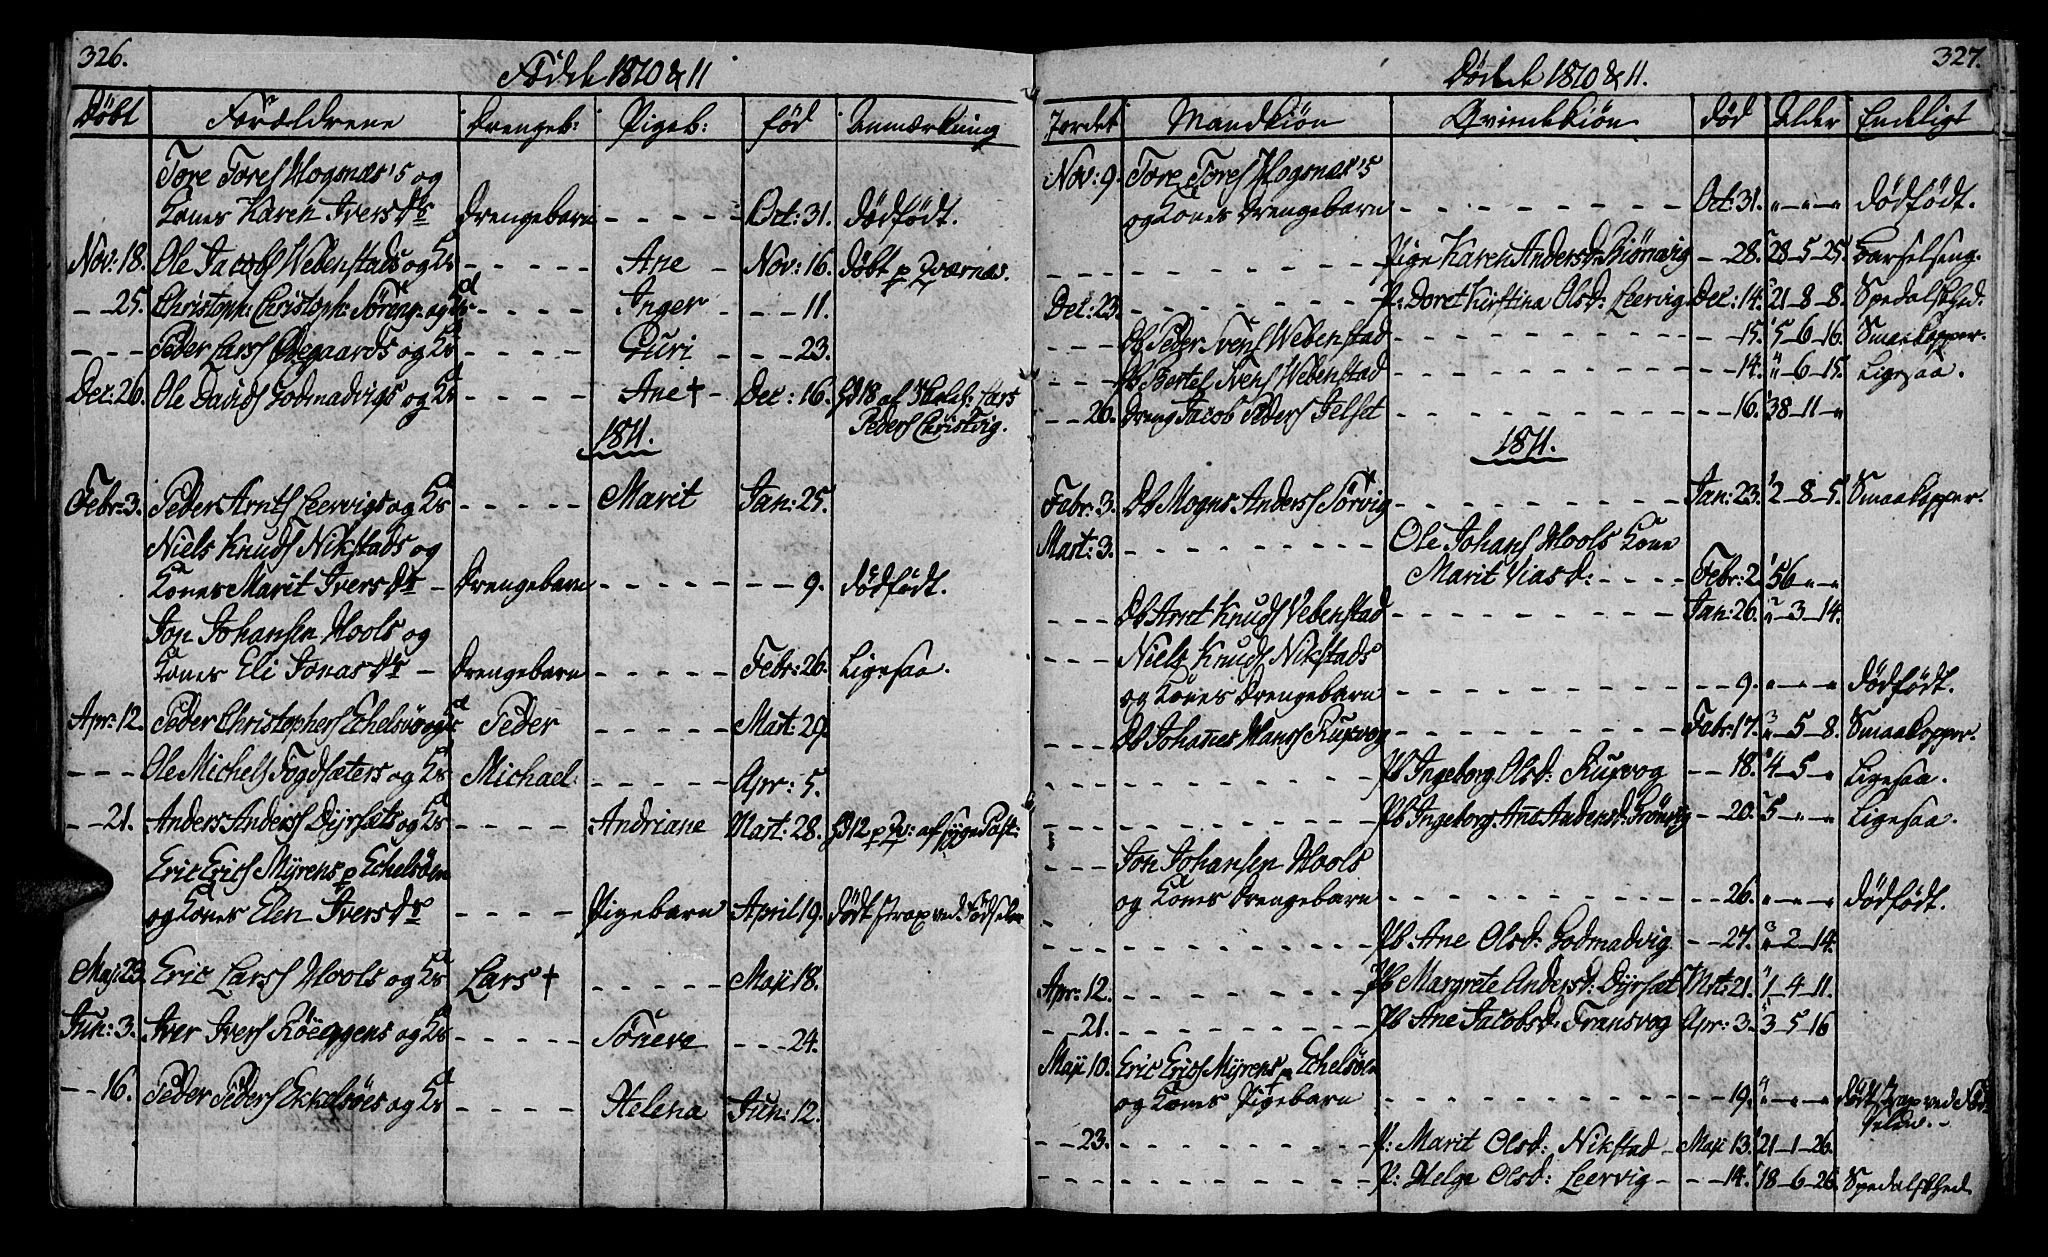 326.
Fødde 1810 & 11
Døbt Forældrene Drengeb: Pigeb: fød Anmærkning
Tore Tores Hogsnæs's og
Kones Karen Ivers Drs Drengebarn - - - - - Oct: 31. Dødfødt.
Nov: 18. Ole Jacobs Webenstads og Ks - - - - - Ane - Nov: 16. døbt p Tværnæs.
- - 25. Christoph: Christoph: og Ks - - - - Inger - - - 11.
- - - Peder Lars Ødegaards og Ks - - - - Guri - - - 23.
Dec: 26. Ole Davids Godmadvigs og Ks - - - - - Ane † - Dec: 16. 18 af Lars
Peders Christvig.
1811.
Febr: 3. Peder Arnts Leervigs og Ks - - - - - Marit Jan: 25.
Niels Knuds Nikstads og
Kones Marit Ivers Dr - Drengebarn - - - - - - - 9. dødfødt.
Jon Johansen Hools og
Kones Eli Jonas Dr - Drengebarn - - - - - Febr: 26. Ligesaa.
Apr: 12. Peder Christophers Echelsø og Ks Peder - - - - - Mart: 29.
- - - Ole Michels Fogdsæters og Ks Michael: - - - - - Apr: 5.
- - 21. Anders Anders Dyrsæts og Ks - - - - Andriane Mart: 28. 12 p af syge Past:
Eric Erics Myrens p Echelsøen
og Kones Elen Ivers Dr - - - - Pigebarn April 19. Dødt strax ved Fødselen
Maji 23. Eric Lars Hools og Ks Lars † - - - - - Maji 18.
Jun: 3. Iver Ivers Røeggens og Ks - - - - - Søneva - - - 24.
- - 16. Peder Peders Ekkelsøes og Ks - - - - Helena Jun: 12.
327.
Døde 1810 & 11.
Jordet Mandkiøn Qvindekiøn Død Alder Endeligt
Nov: 9. Tore Tores Hogsnæs's
og Kones Drengebarn - - - - - - - Oct: 31. " - " - " Dødfødt.
- - - - - - - - - Pige Karen Andersd: - - 28. 28 - 5 - 25. Barselseng.
Dec: 23. - - - - - - P: Doret Kirstina Olsd: Leervig Dec: 14. 21 - 8 - 8. Spedalskhed.
- - - Db Peder Svens Webenstad - - - - - - - 15. 5 - 6 - 16. Smaakopper.
- - - Db Bertel Svens Webenstad - - - - - - - 14. " - 6 - 15. Ligesaa.
- - 26. Dreng Jacob Peders Jelset - - - - - - - 16. 38 - 11 - "
1811.
Febr: 3. Db Mogns Anders Sørvig - - - - - - - Jan: 23. 2 - 8 - 5. Smaakopper.
Mart: 3. - - - - - - - - Ole Johans Hools Kone
Marit Niasd: - - - - Febr: 2. 56 - " - "
- - - Db Arnt Knuds Vebenstad - - - - - - - Jan: 26. " - 3 - 14.
- - - Niels Knuds Nikstads
og Kones Drengebarn - - - - - - - 9. " - " - " Dødfødt.
- - - Db Johannes Hans Ruxvog - - - - - - - Febr: 17. " - 5 - 8. Smaakopper.
- - - - - - - - - Pb Ingeborg Olsd: Ruxvog - - 18. 4 - 5 - " Ligesaa.
- - - - - - - - - Pb Ingeborg Ane Andersd: - - 20. 5 - " - " Ligesaa.
- - - Jon Johansen Hools
og Kones Drengebarn - - - - - - - 26. " - " - " dødfødt.
- - - - - - - - - Pb Ane Olsd: Godmadvig - - 27. " - 2 - 14.
Apr: 12. - - - - - - Pb Margrete Andersd: Dyrsæt Mrt: 21. 1 - 4 - 11.
- - 21. - - - - - - Pb Ane Jacobsd: Fransvog Apr: 3. 3 - 5 - 16
Maji 10. Eric Erics Myrens p Echelsøen
og Kones Pigebarn - - - - - - - 19. " - " - " dødt strax ved Fød
selen. -
- - 23. - - - - - - P: Marit Olsd: Nikstad - Maji 13. 21 - 1 - 26.
- - - - - - - - - P: Helga Olsd: Leervig - - - 14. 18 - 6 - 26. Spedalskhed